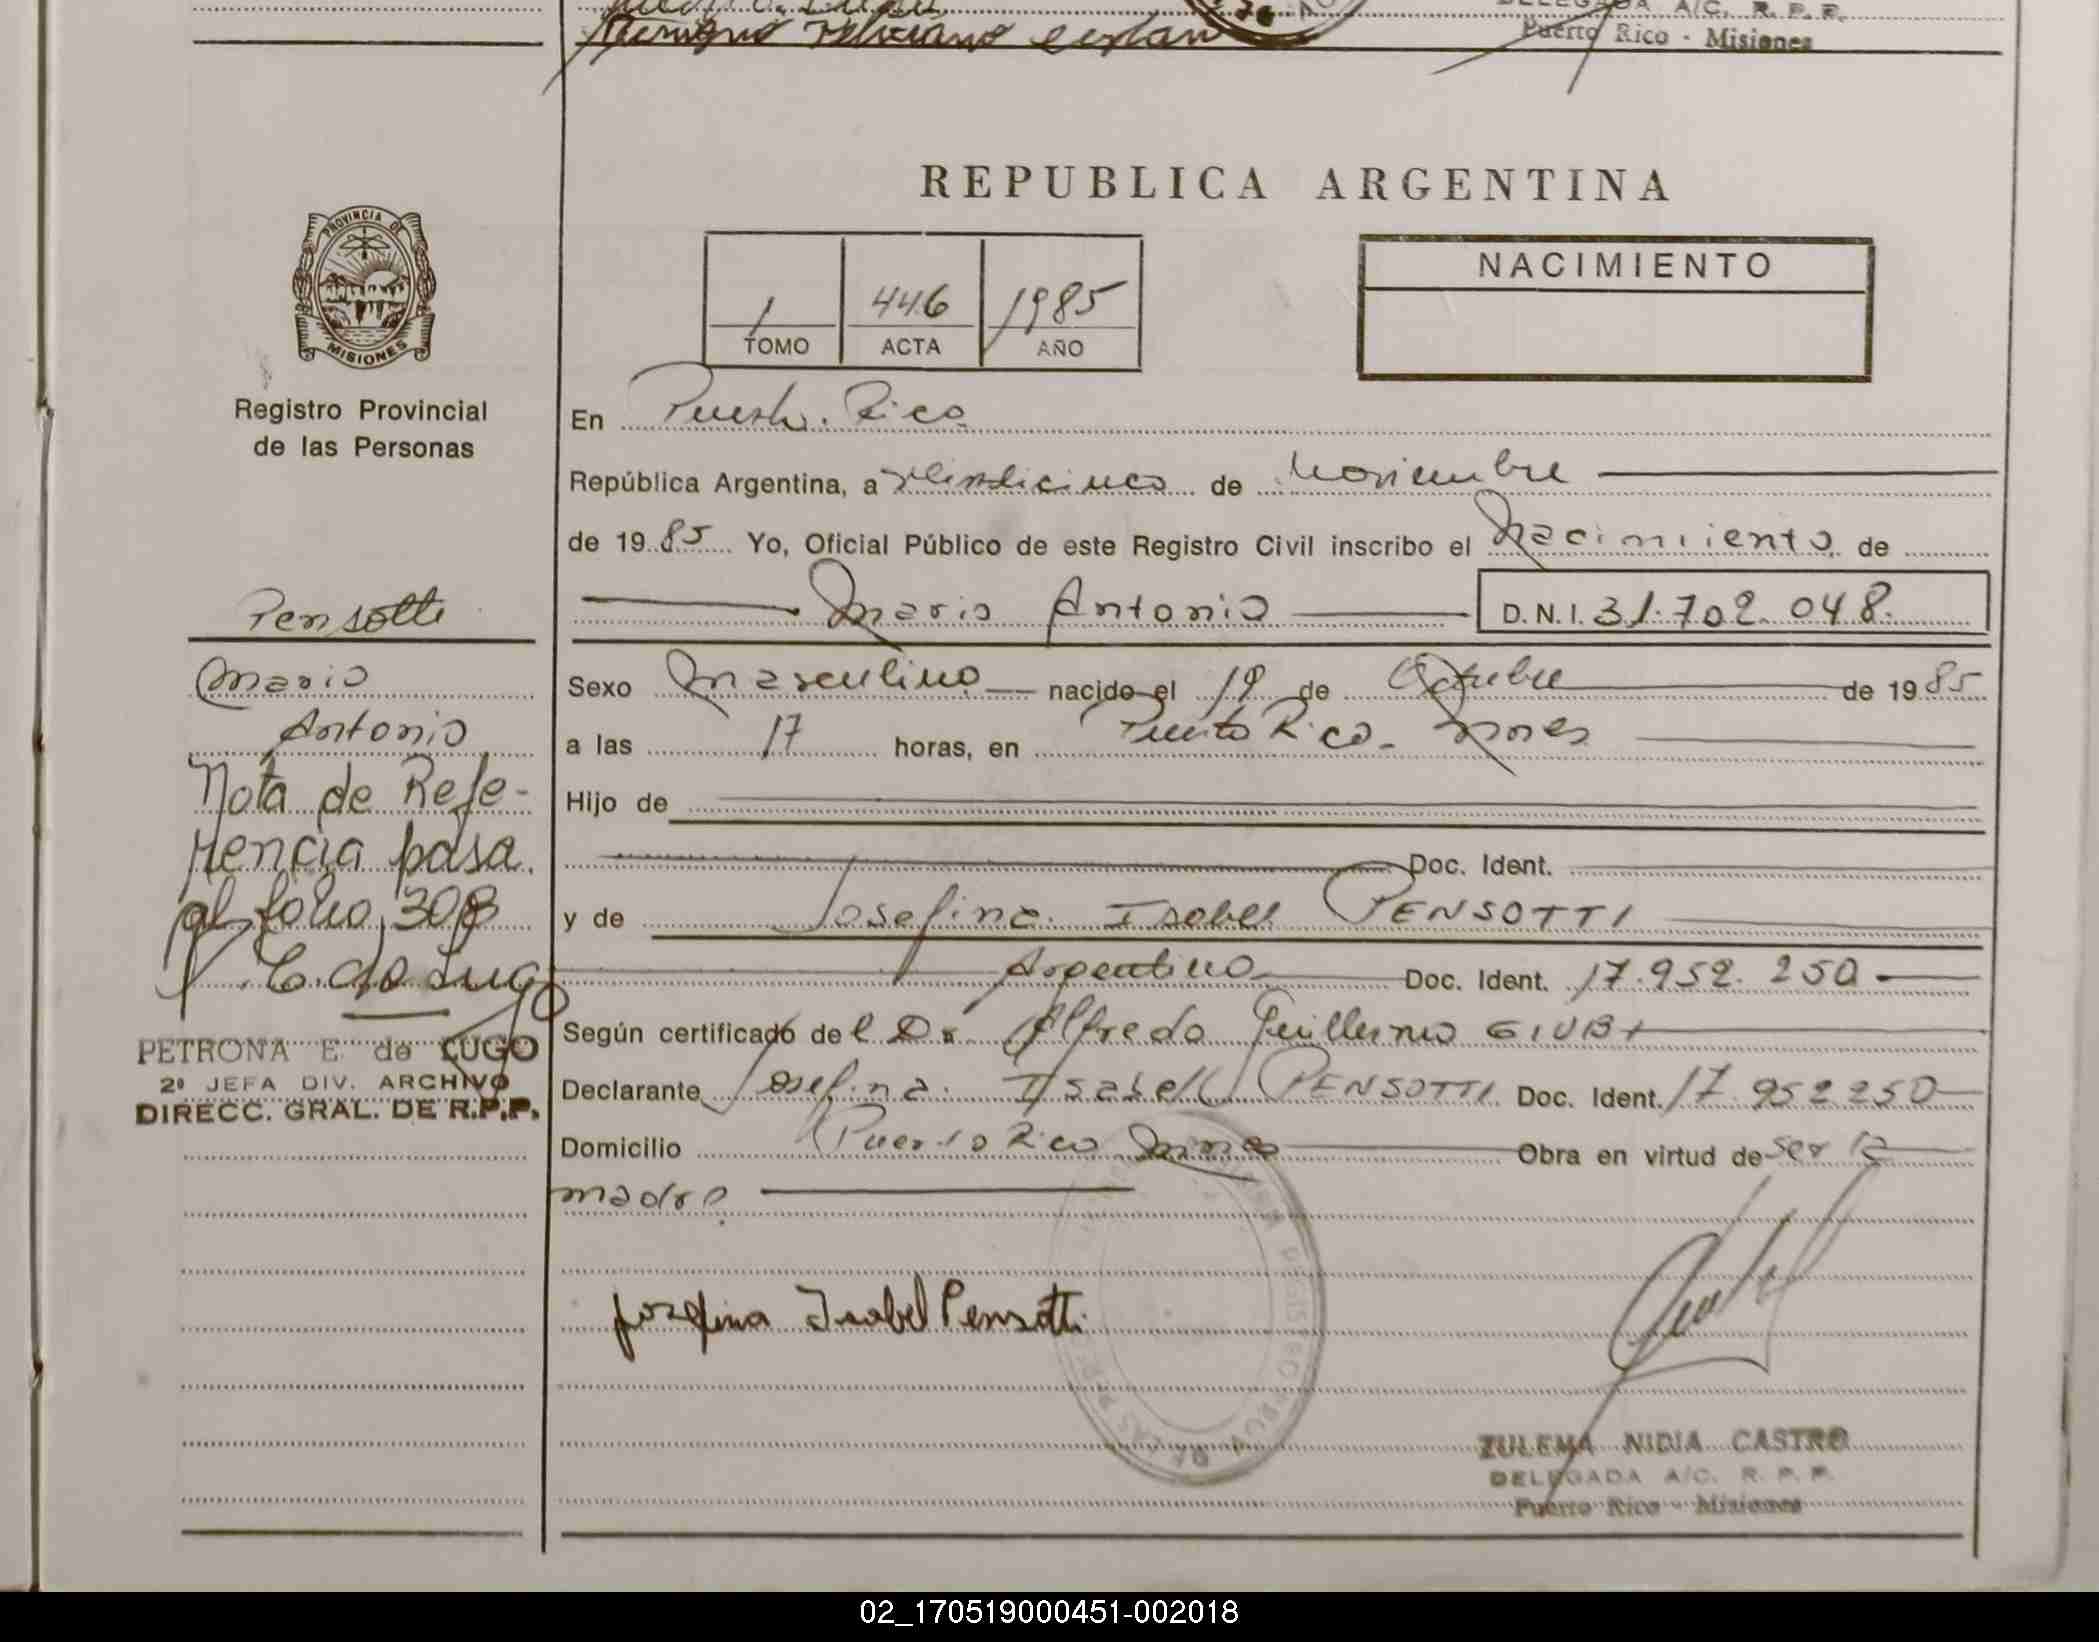 DELEGADA A/C. R. P. P.
Puerto Rico - Misiones
REPUBLICA ARGENTINA
PROVINCIA DE
MISIONES
Registro Provincial
de las Personas
1 446 1985
TOMO ACTA AÑO
NACIMIENTO
En Puerto Rico
República Argentina, a veinticinco de Noviembre
de 1985 Yo, Oficial Público de este Registro Civil inscribo el Nacimiento de
Mario Antonio D.N.I. 31.702.048.
Pensotti
Mario
Antonio
Nota de Refe-
rencia pasa
al folio 308
E. de Lugo
PETRONA E de LUGO
2ª JEFA DIV. ARCHIVO
DIRECC. GRAL. DE R.P.P.
Sexo Masculino nacido el 19 de Octubre de 1985
a las 17 horas, en Puerto Rico - Mnes
Hijo de
Doc. Ident.
y de Josefina Isabel PENSOTTI
Argentina Doc. Ident. 17.952.250
Según certificado del Dr. Alfredo Guillermo GIUBI
Declarante Josefina Isabel PENSOTTI Doc. Ident. 17.952250
Domicilio Puerto Rico Mnes Obra en virtud de ser la
madre
Josefina Isabel Pensotti
ZULEMA NIDIA CASTRO
DELEGADA A/C. R. P. P.
Puerto Rico - Misiones
02_170519000451-002018